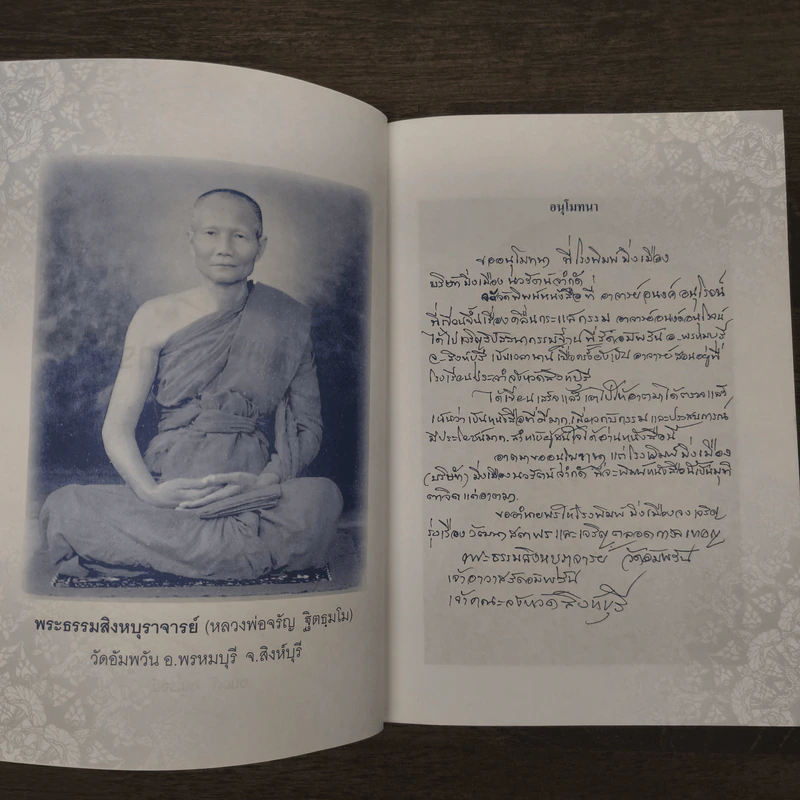 พระธรรมสิงหบุราจารย์ (หลวงพ่อจรัญ ฐิตธมฺโม)
วัดอัมพวัน อ.พรหมบุรี จ.สิงห์บุรี
อนุโมทนา
ขออนุโมทนา ที่โรงพิมพ์มิ่งเมือง
บริษัทมิ่งเมืองนวรัตน์จำกัด
จัดพิมพ์หนังสือที่ อาจารย์อนงค์ อนุโรจน์
ที่เขียนขึ้นเรื่องคลื่นกระแสกรรม อาจารย์อนงค์อนุโรจน์
ได้ไปปฏิบัติกรรมฐานที่วัดอัมพวัน อ.พรหมบุรี
จ.สิงห์บุรี เป็นเวลานาน เมื่อครั้งเป็นอาจารย์สอนอยู่ที่
โรงเรียนประจำจังหวัดสิงห์บุรี
ได้เขียนเสร็จแล้วเอาไปให้อาตมาได้ตรวจแล้ว
เห็นว่าเป็นหนังสือที่ดีมาก เกี่ยวกับกรรม และประสบการณ์
มีประโยชน์มาก สำหรับผู้สนใจได้อ่านหนังสือนี้
อาตมาขออนุโมทนา แด่โรงพิมพ์มิ่งเมือง
(บริษัท) มิ่งเมืองนวรัตน์ จำกัด ที่จะพิมพ์หนังสือนี้เป็นมุทิ
ตาจิตแด่อาตมา.
ขออำนวยพรให้โรงพิมพ์มิ่งเมืองจงเจริญ
รุ่งเรือง วัฒนาสถาพร และเจริญตลอดกาลเทอญ
พระธรรมสิงหบุราจารย์ วัดอัมพวัน
เจ้าอาวาสวัดอัมพวัน
เจ้าคณะจังหวัดสิงห์บุรี